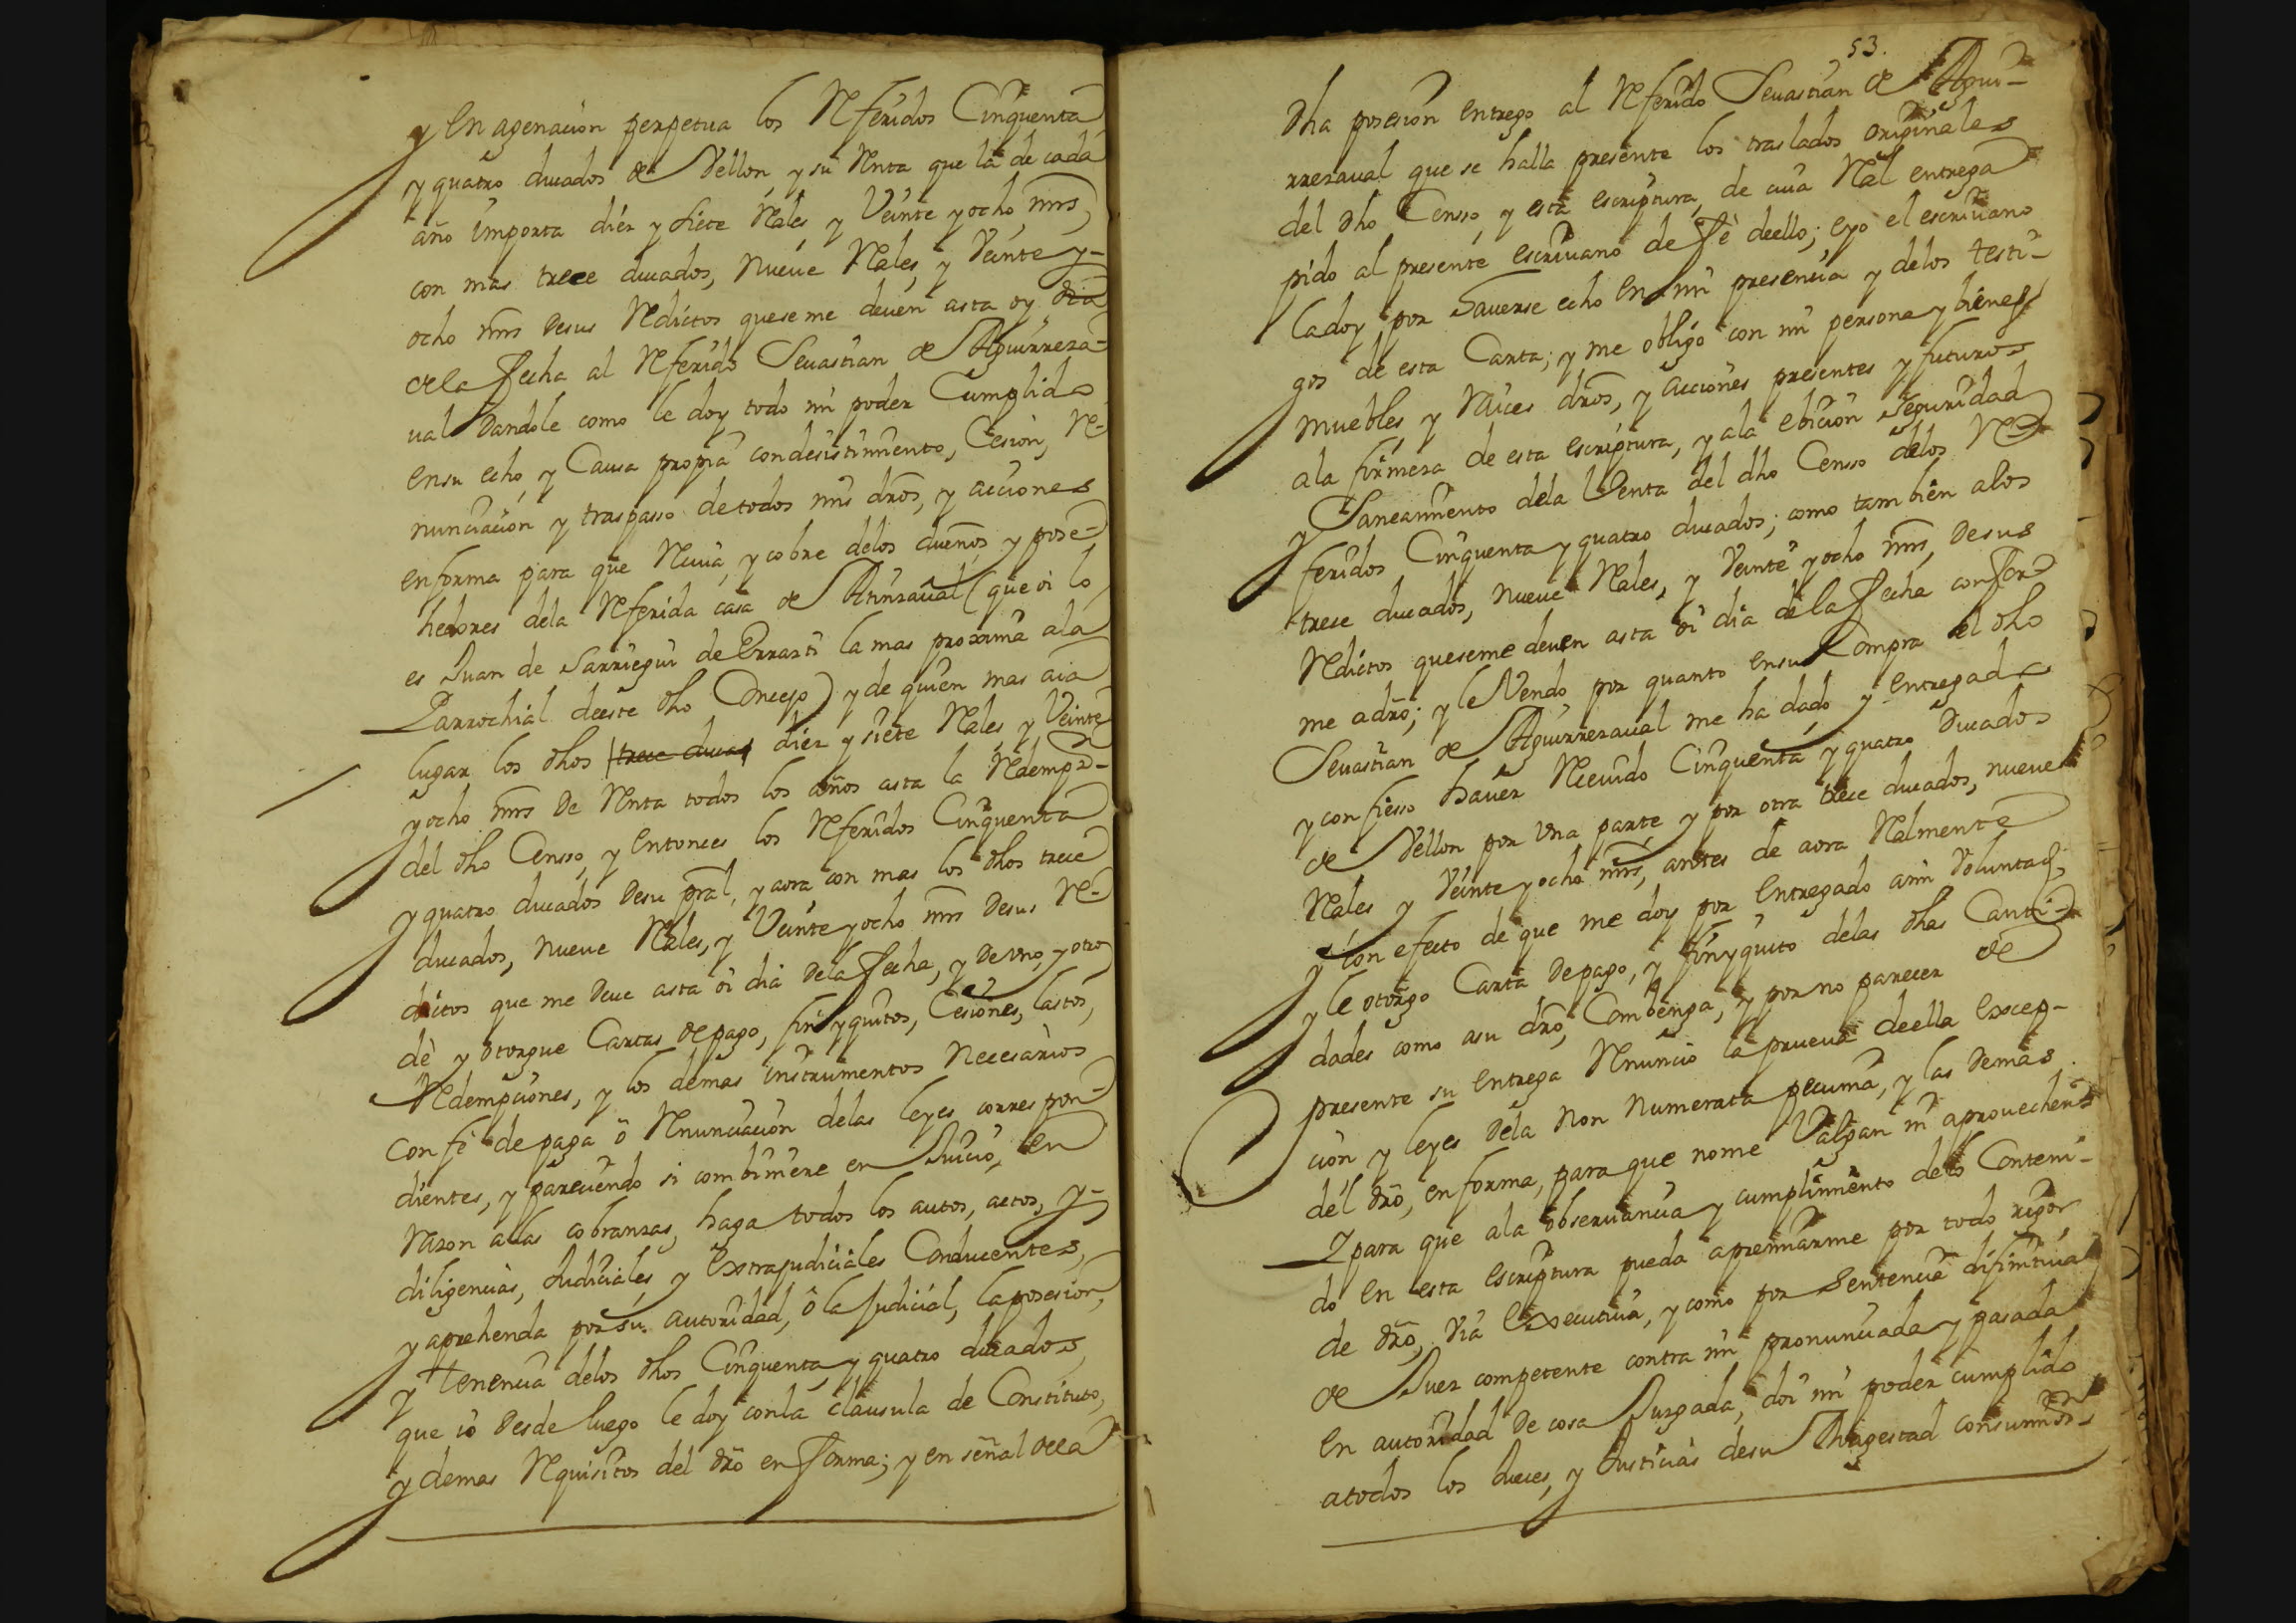 y En agenacion perpetua los Referidos Cinquenta
y quatro ducados de Vellon, y su Renta que la de cada
año importa diez y siete Rales y Veinte y ocho mrs,
con mas trece ducados, nueve Rales, y Veinte y-
ocho mrs desus Redictos quese me deven asta oy dia
dela fecha al Referido Sevastian de Aguirreza-
ual dandole como le doy todo mi poder Cumplido
ensu echo, y Causa propia con desistimiento, Cesion, Re-
nunciacion y traspasso detodos mis dros, y acciones
enforma para que Reciva, y cobre delos dueños, y posse-
hedores dela Referida casa de Arinzaual (que oi lo
es Juan de Sarriegui de Errazti la mas proxima ala
Parrochial deeste dho Concejo) y de quien mas aia
lugar los dhos trece ducas diez y siete Rales, y Veinte
y ocho mrs de Renta todos los años asta la Redempn-
del dho Censso, y Entonces los Referidos Cinquenta
y quatro ducados desu pral, y aora con mas los dhos trece
ducados, nueve Rales, y Veinte y ocho mrs desus Re-
ditos que me deve asta oi dia dela fecha, y de uno, y otro
dè y otorgue Cartas de pago, fin y quitos, Cesiones, lastos,
Redempciones, y los demas instrumentos necesarios
con fé de paga ô Renunciacion delas leyes correspon-
dientes, y pareciendo si combiniere en Juicio, en
Razon alas cobranzas, haga todos los autos, actos, y-
diligencias, Judiciales, y Extrajudiciales Conducentes,
y aprehenda por su autoridad, ô la Judicial, la posesion,
y tenencia delos dhos Cinquenta y quatro ducados,
que io desde luego le doy con la clausula de Constituto,
y demas Requisitos del dro en forma; y en señal dela
53.
dha posesion entrego al Referido Sevastian de Agui-
rrezaual que se halla presente los traslados originales
del dho Censso, y esta escriptura, de cuia Ral entrega
pido al presente escrivano de fè deello; e yo el escrivano
la doy por haverse echo En mi presencia y delos testi-
gos de esta Carta; y me obligo con mi persona y bienes
muebles, y Raices dros, y acciones presentes y futuros
ala firmeza de esta escriptura, y ala ebicion seguridad
y Saneamiento dela Venta del dho Censso delos Re-
feridos Cinquenta y quatro ducados; como tambien alos
trece ducados, nueve Rales, y Veinte y ocho mrs, desus
Redictos queseme deven asta oi dia dela fecha confor-
me a dro; y le Vendo por quanto ensu Compra el dho
Sevastian de Aguirrezaual me ha dado y entregado
y confiesso haver Recivido Cinquenta y quatro Ducados
de Vellon por una parte y por otra trece ducados, nueve
Rales y Veinte y ocho mrs, antes de aora Ralmente
y con efecto de que me doy por Entregado ami Voluntad,
y le otorgo Carta de pago, y fin y quito delas dhas Canti-
dades como asu dro, Combenga, y por no parecer de
presente su Entrega Renuncio la prueva deella Excep-
cion y leyes dela non numerata pecunia, y las demas
dél dro, en forma, para que no me Valgan ni aprovechen
Y para que ala observancia y cumplimiento delo Conteni-
do En esta Escriptura pueda apremiarme por todo rigor
de dro, Via Executiva, y como por Sentencia difinitiva
de Juez competente contra mi pronunciada y pasada
En autoridad de cosa Juzgada, doi mi poder cumplido
atodos los Jueces, y Justicias desu Magestad consumisson